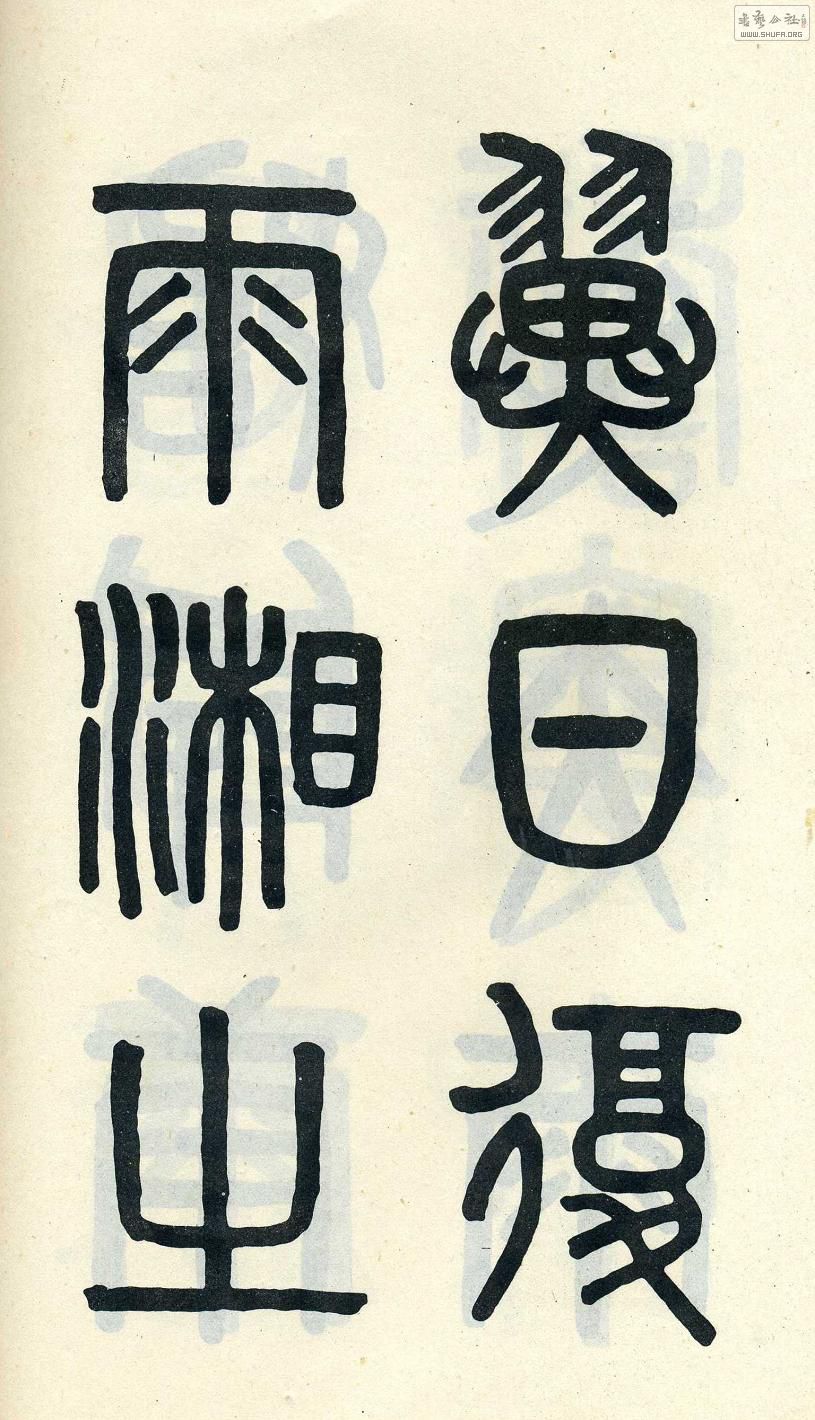 翼日復
雨湘之
書藝公社
WWW.SHUFA.ORG